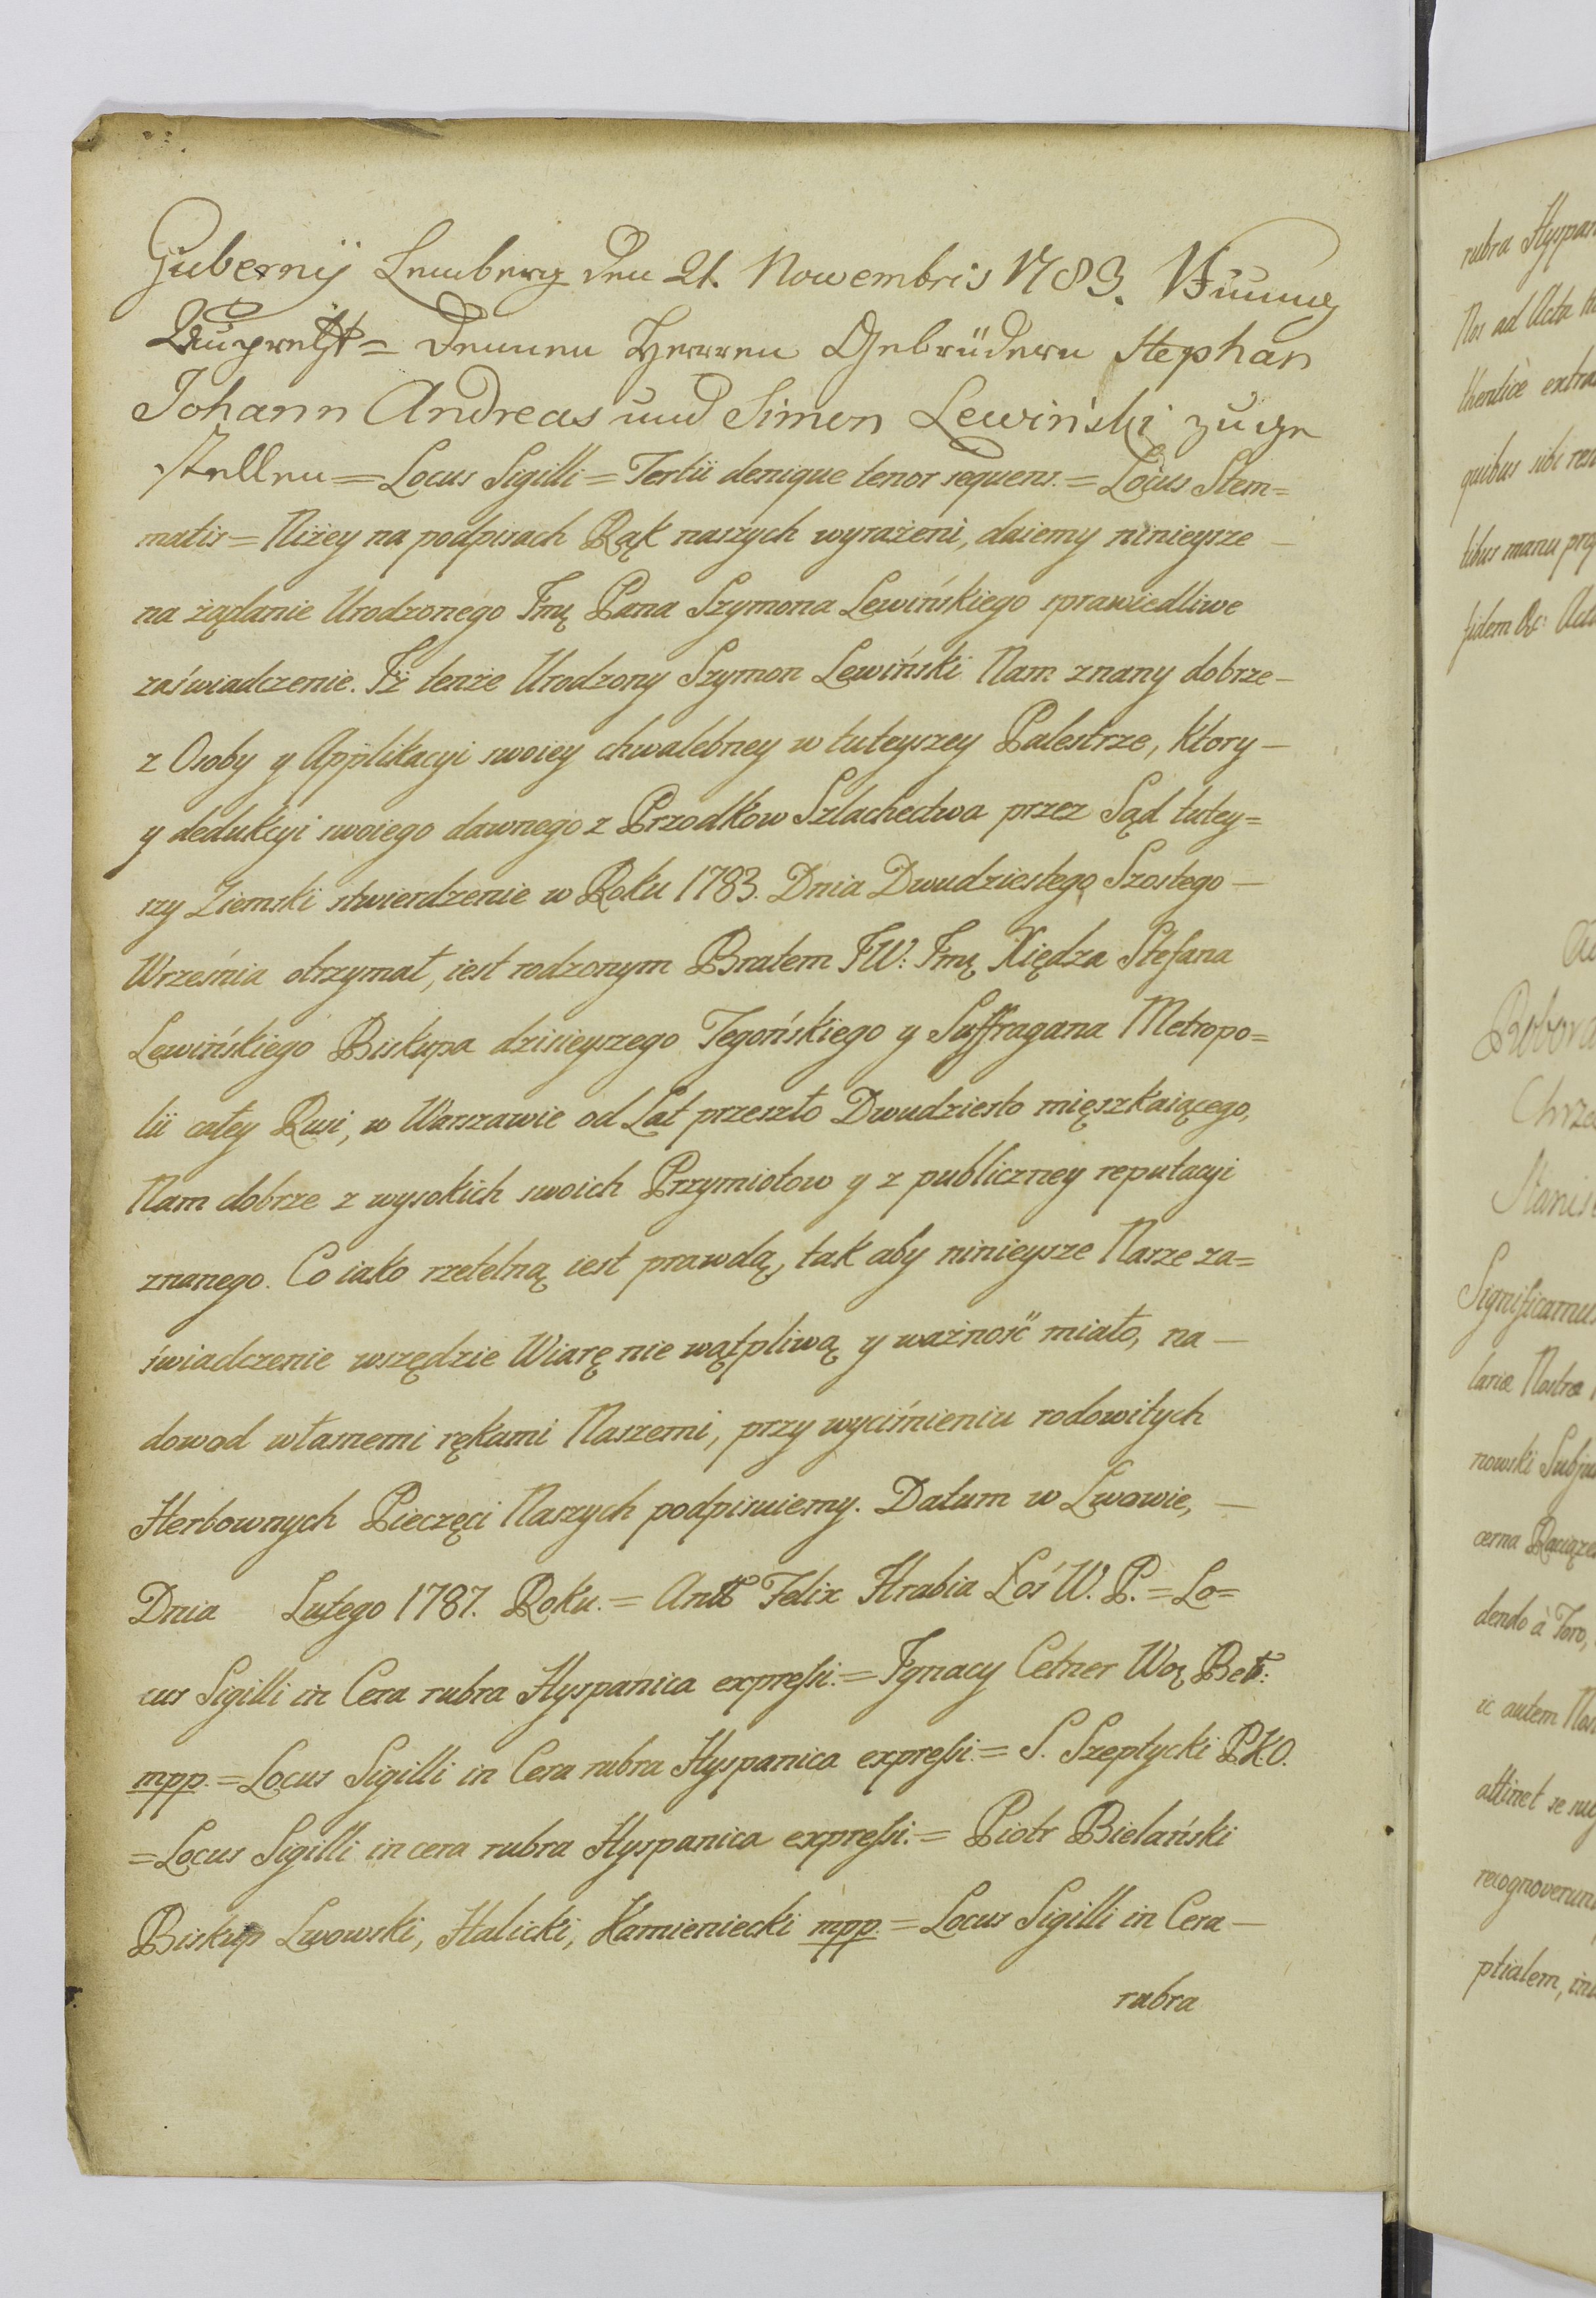 Gubernÿ Lemberg den 21. Nowembris 1783.
= Dennen Herren Gebrüdern Stephan
Johann Andreas und Simon Lewiński zuge
stellen = Locus Sigilli = Tertii denique tenor sequens. = Locus Stem=
matis = Niżey na podpisach Rąk naszych wyrażeni, daiemy ninieysze —
na żądanie Urodzonego Jmę Pana Szymona Lewińskiego sprawiedliwe
zaświadczenie. Iż tenże Urodzony Szymon Lewiński Nam znany dobrze —
z Osoby y Applikacyi swoiey chwalebney w tuteyszey Palestrze, ktory —
y dedukcyi swoiego dawnego z Przodkow Szlachectwa przez Sąd tutey=
szy Ziemski stwierdzenie w Roku 1783. Dnia Dwudziestego Szostego —
Września otrzymał, iest rodzonym Bratem JW: Jmę Xiędza Stefana
Lewińskiego Biskupa dzisieyszego Tegońskiego y Suffragana Metropo=
lii całey Rusi, w Warszawie od Lat przeszło Dwudziesto mięszkaiącego,
Nam dobrze z wysokich swoich Przymiotow y z publiczney reputacyi
znanego. Co iako rzetelną iest prawdą, tak aby ninieysze Nasze za=
świadczenie wszędzie Wiarę nie wątpliwą y ważność miało, na —
dowod własnemi rękami Naszemi, przy wyciśnieniu rodowitych
Herbownych Pieczęci Naszych podpisuiemy. Datum w Lwowie, —
Dnia Lutego 1787. Roku. = Antt Felix Hrabia Łoś W. P. = Lo=
cus Sigilli in Cera rubra Hyspanica expressi. = Ignacy Cetner Woę Beł:
mpp. = Locus Sigilli in Cera rubra Hyspanica expressi. = S. Szeptycki P.K.O.
= Locus Sigilli in cera rubra Hyspanica expressi. = Piotr Bielański
Biskup Lwowski, Halicki, Kamieniecki mpp. = Locus Sigilli in Cera —
rubra
rubra Hyspan
Nos ad Acta
thenticè extra
quibus sibi
tibus manu
fidem &c:
Robora
Chrza
Stanis
Significamus
lariæ Nostræ
nowski
cerna
dendo à Foro,
ic autem
attinet se
recognoverun
ptialem,